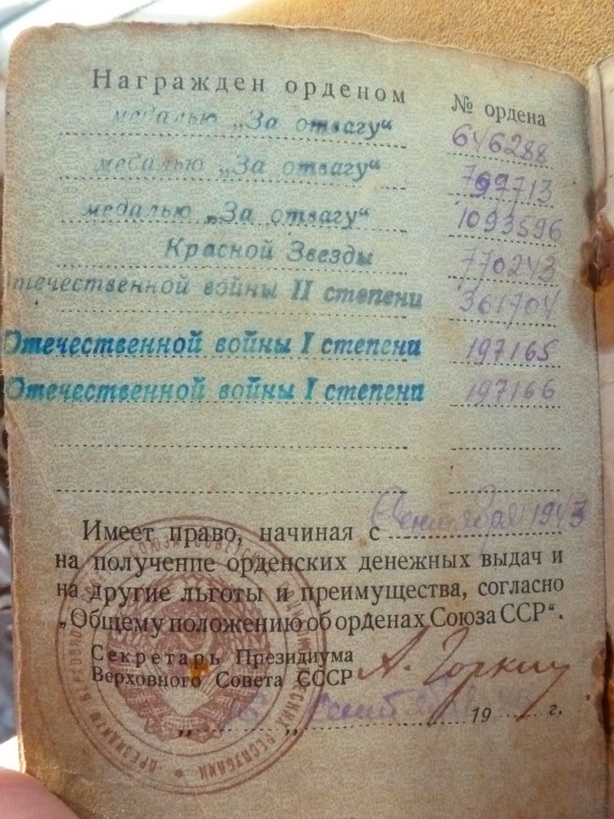 Награжден орденом № ордена
медалью „За отвагу“ 646288
медалью „За отвагу“ 797713
медалью „За отвагу“ 1093596
Красной Звезды 770243
течественной войны II степени 361704
Отечественной войны I степени 197165
Отечественной войны I степени 197166
Имеет право, начиная с Сентября 1943
на получение орденских денежных выдач и
на другие льготы и преимущества, согласно
„Общему положению об орденах Союза ССР“.
Секретарь Президиума
Верховного Совета СССР А. Горкин
„ “ 19 г.